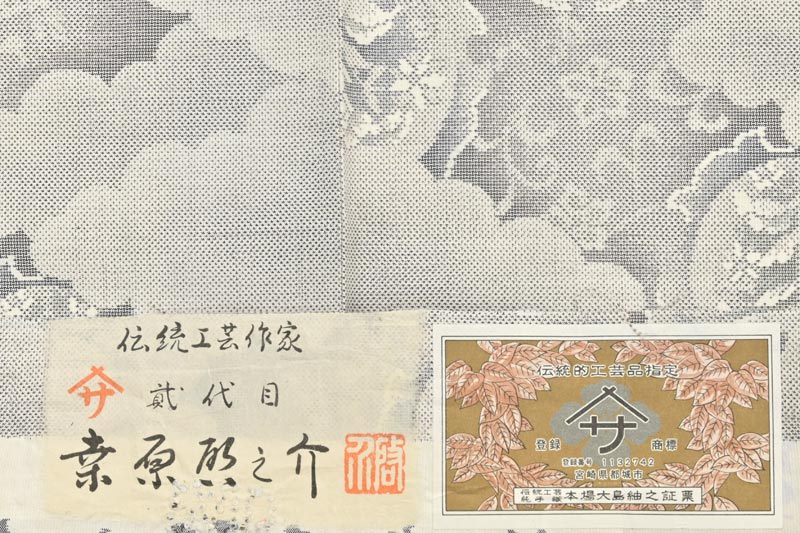 伝統工芸作家
サ 貳代目
桒原啓之介
伝統的工芸品指定
サ
登録 商標
登録番号 1132742
宮崎県都城市
伝統工芸
純手織
本場大島紬之証票